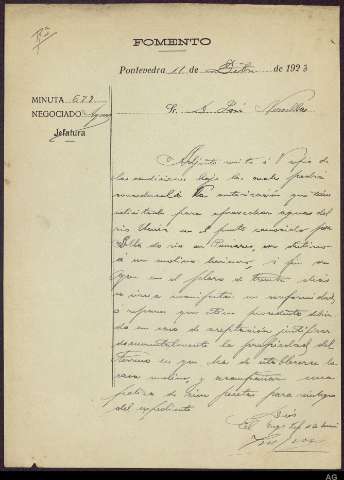 FOMENTO
Pontevedra 11 de Dicbre de 1923
MINUTA 672
NEGOCIADO Aguas
Jefatura
Sr. D. José
Adjunto remito á V. copia de
las condiciones bajo las cuales podrá
concedersele la autorización que tiene
solicitada para aprovechar aguas del
rio en el punto conocido por
do rio en con destino
á un molino harinero, á fin de
que en el plazo de treinta dias
se sirva manifestar su conformidad
ó reparos que estime procedente debien
do en caso de aceptación justificar
documentalmente la propiedad del
terreno en que ha de establecerse la
casa molino, y acompañar una
póliza de pesetas para reintegro
del expediente
Dios
El Ingº Jefe